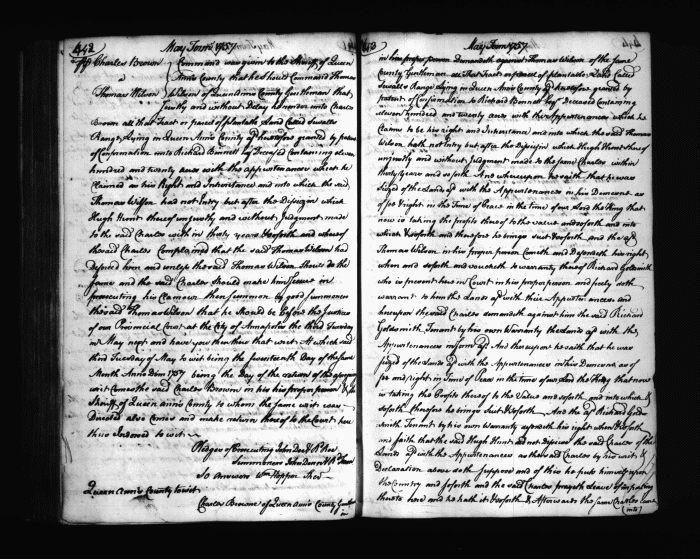 442 May Term 1757
Charles Brown Command was given to the Sheriff of Queen
Anns County that he should Command Thomas
Thomas Wilson Wilson of Queen Anns County Gentleman that
justly and without Delay he render unto Charles
Brown all that Tract or parcel of plantable Land called Sewalls
Range Lying in Queen Anns County heretofore granted by patent
of Confirmation unto Richard Bennett Esqr Deceased Containing eleven
hundred and twenty acres with the appurtenances which he
Claimed as his Right and Inheritance and into which the said
Thomas Wilson had not Entry but after the Disseizin which
Hugh Hunt thereof unjustly and without Judgment made
to the said Charles within thirty years &soforth and whereof
the said Charles Complained that the said Thomas Wilson had
deforced him and unless the said Thomas Wilson Should do the
same and the said Charles Should make him Secure in
prosecuting his Clamour then Summon by good Summoners
the said Thomas Wilson that he should be before the Justices
of our Provincial Court at the City of Annapolis the third Tuesday
in May next and have you then there that writ At which said
third Tuesday of May to wit being the seventeenth Day of the same
Month Anno Dom 1757 being the Day of the return of the aforesd
writ Comes the said Charles Brown in his proper person & the
Sheriff of Queen Anns County to whom the same writ was
Directed also Comes and makes return thereof to the Court here
thus Indorsed to wit
Pledges of prosecuting John Doe & Rd Roe
Summoners John Denn & Rd Fenn
So Answers Wm Hopper Sher
Queen Anns County to wit
Charles Browne of Queen Anns County Gentleman
443 May Term 1757
in his proper person Demandeth against Thomas Wilson of the same
County Gentleman all that Tract or parcel of plantable Land Called
Sewalls Range lying in Queen Anns County heretofore granted by
patent of Confirmation to Richard Bennett Esqr Deceased Containing
eleven hundred and twenty acres with the Appurtenances which he
Claims to be his right and Inheritance and into which the said Thomas
Wilson hath not Entry but after the Disseizin which Hugh Hunt thereof
unjustly and without Judgment made to the same Charles within
thirty years and soforth And whereupon he saith that he was
Seized of the Lands afd with the Appurtenances in his Demesne as
of fee & Right in the Time of Peace in the time of our Lord the King that
now is taking the profits thereof to the value and soforth and into
which &soforth and therefore he brings suit &soforth and the afd
Thomas Wilson in his proper person Cometh and Defendeth his right
when and soforth and voucheth to warranty thereof Richard Goldsmith
who is present here in Court in his proper person and freely doth
warrant to him the Lands afd with their Appurtenances and
hereupon the said Charles demandeth against him the said Richard
Goldsmith Tenant by his own Warranty the Lands afd with the
Appurtenances in form afd And thereupon he saith that he was
seized of the Lands afd with the Appurtenances in his Demesne as of
fee and right in time of Peace in the time of our Lord the King that now
is taking the Profits thereof to the Value and soforth and into which &
soforth therefore he brings Suit &soforth And the afd Richard Gold-
smith Tenant by his own Warranty defendeth his right when &soforth
and saith that the said Hugh Hunt did not disseize the said Charles of the
Lands afd with the Appurtenances as the said Charles by his writ &
Declaration above doth Suppose and of this he puts himself upon
the Country and soforth and the said Charles prayeth Leave of imparling
thereto here and he hath it &soforth & Afterwards the same Charles Comes
(into)